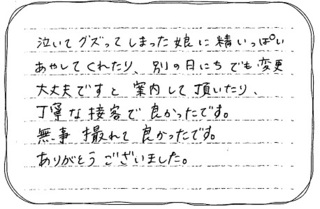 泣いてグズってしまった娘に精いっぱい
あやしてくれたり、別の日にちでも変更
大丈夫ですと案内して頂いたり、
丁寧な接客で良かったです。
無事撮れて良かったです。
ありがとうございました。